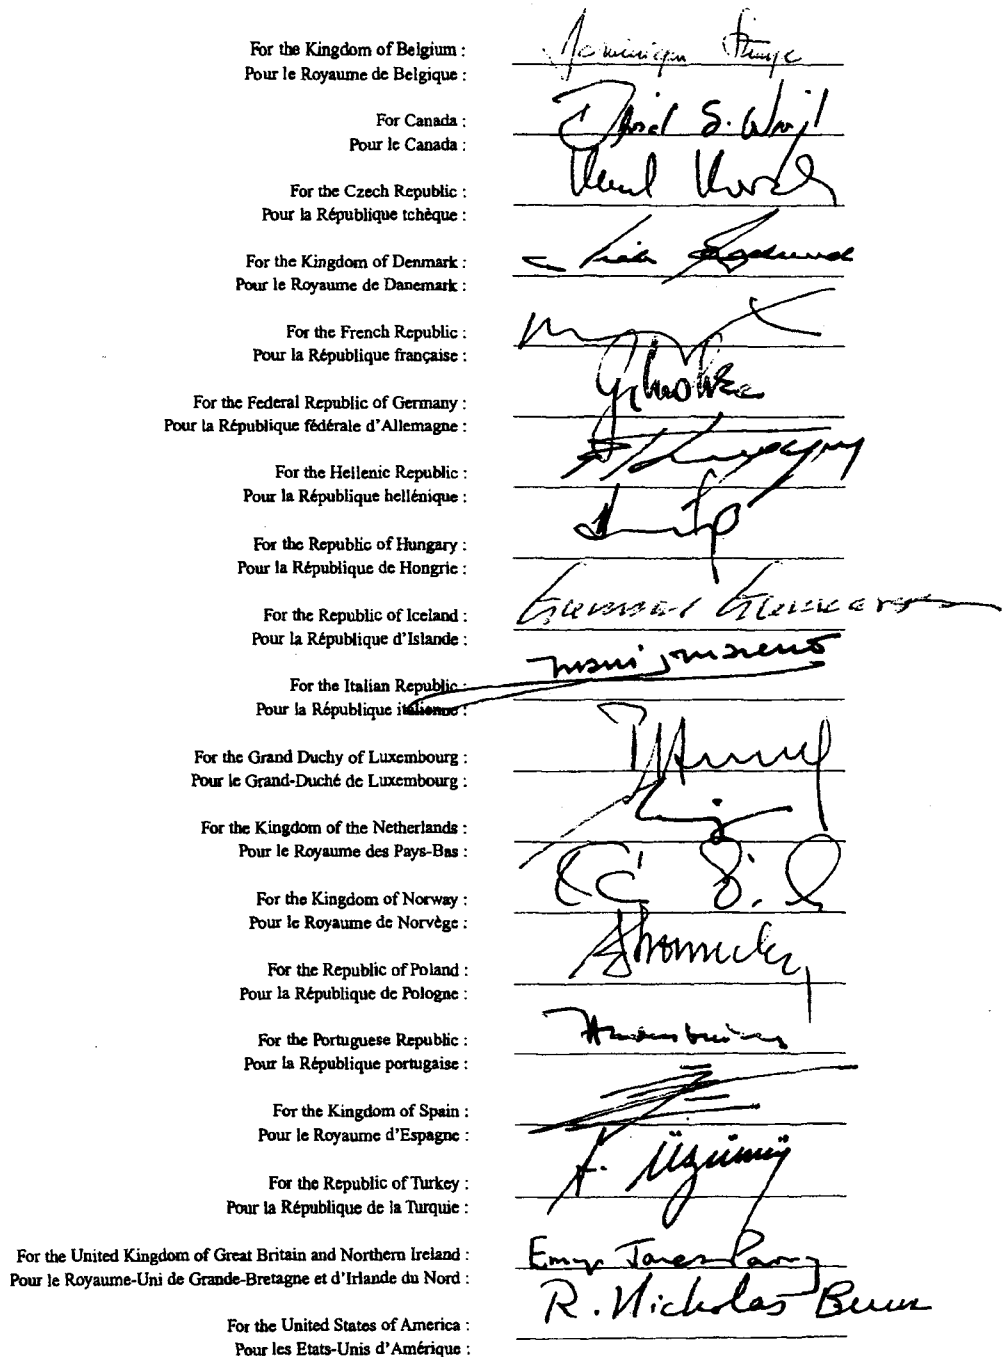 For the Kingdom of Belgium :
Pour le Royaume de Belgique :
For Canada :
Pour le Canada :
David S. Wright
For the Czech Republic :
Pour la République tchèque :
For the Kingdom of Denmark :
Pour le Royaume de Danemark :
For the French Republic :
Pour la République française :
For the Federal Republic of Germany :
Pour la République fédérale d'Allemagne :
For the Hellenic Republic :
Pour la République hellénique :
For the Republic of Hungary :
Pour la République de Hongrie :
For the Republic of Iceland :
Pour la République d'Islande :
Gunnar Gunnarsson
For the Italian Republic :
Pour la République italienne :
For the Grand Duchy of Luxembourg :
Pour le Grand-Duché de Luxembourg :
For the Kingdom of the Netherlands :
Pour le Royaume des Pays-Bas :
For the Kingdom of Norway :
Pour le Royaume de Norvège :
For the Republic of Poland :
Pour la République de Pologne :
For the Portuguese Republic :
Pour la République portugaise :
For the Kingdom of Spain :
Pour le Royaume d'Espagne :
For the Republic of Turkey :
Pour la République de la Turquie :
For the United Kingdom of Great Britain and Northern Ireland :
Pour le Royaume-Uni de Grande-Bretagne et d'Irlande du Nord :
Emyr Jones Parry
For the United States of America :
Pour les Etats-Unis d'Amérique :
R. Nicholas Burns